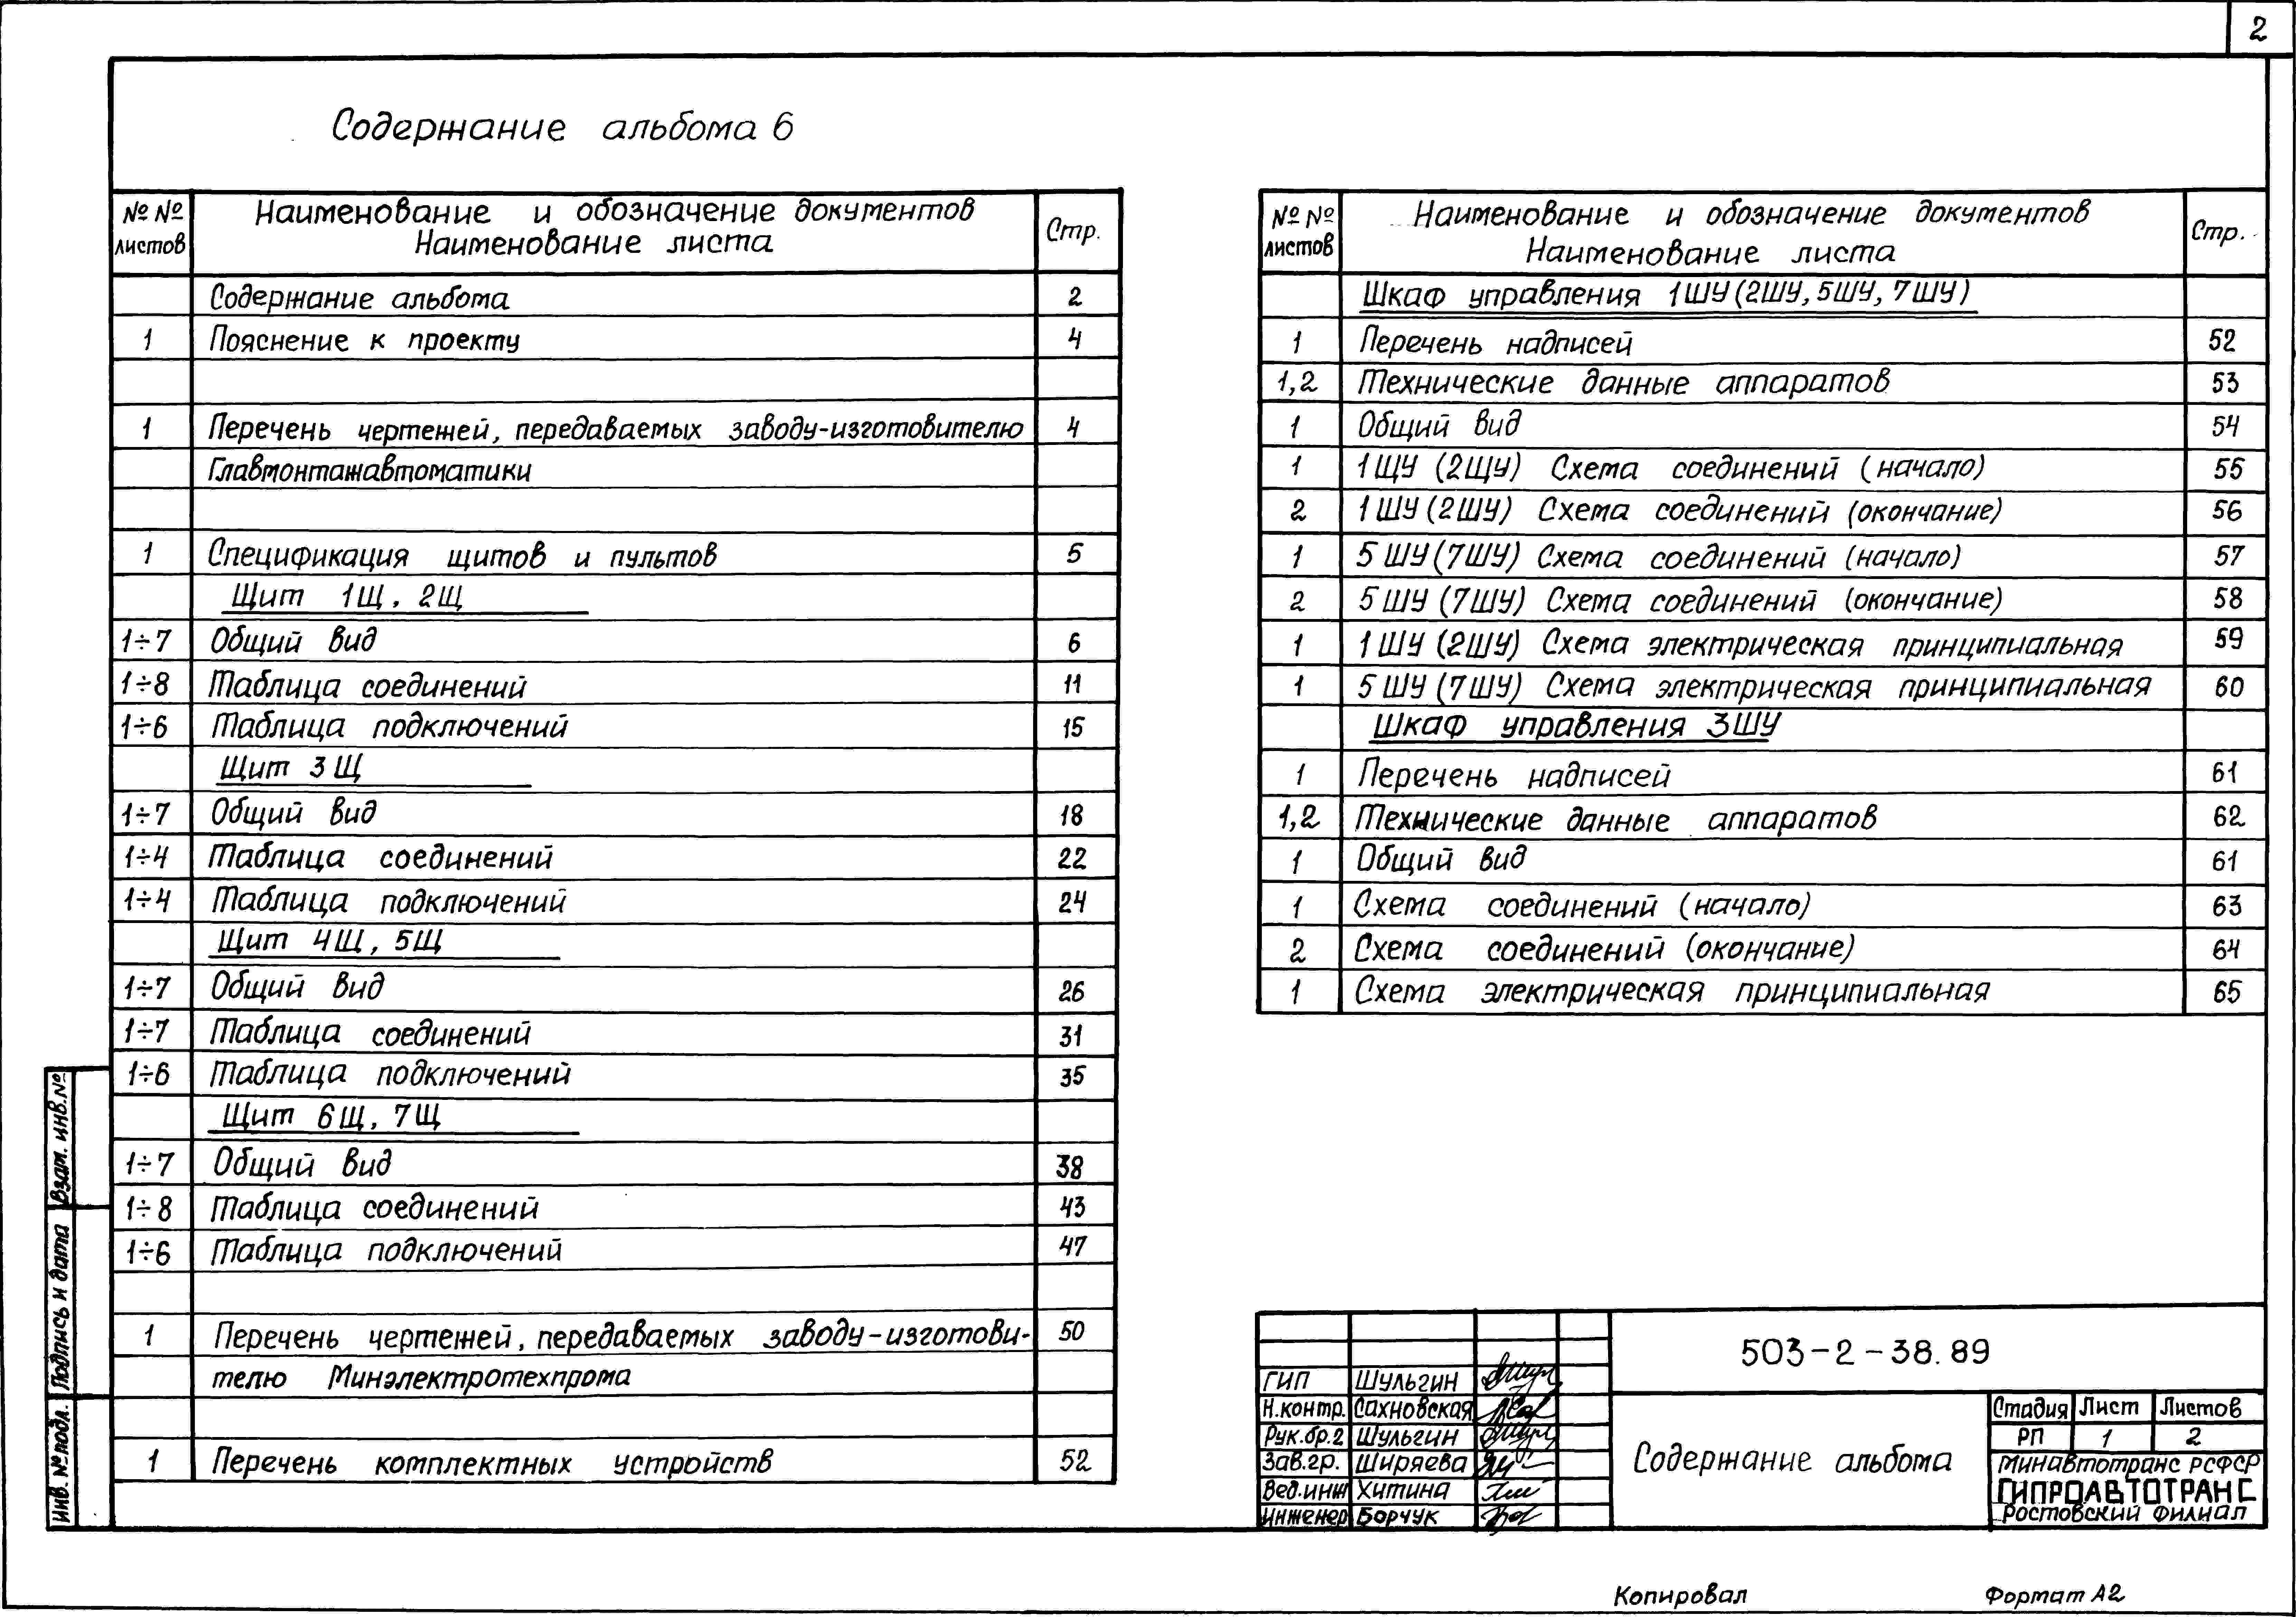 2
Содержание альбома 6
№ № листов | Наименование и обозначение документов Наименование листа | Стр.
Содержание альбома | 2
1 | Пояснение к проекту | 4
1 | Перечень чертежей, передаваемых заводу-изготовителю | 4
Главмонтажавтоматики
1 | Спецификация щитов и пультов | 5
Щит 1Щ, 2Щ
1÷7 | Общий вид | 6
1÷8 | Таблица соединений | 11
1÷6 | Таблица подключений | 15
Щит 3Щ
1÷7 | Общий вид | 18
1÷4 | Таблица соединений | 22
1÷4 | Таблица подключений | 24
Щит 4Щ, 5Щ
1÷7 | Общий вид | 26
1÷7 | Таблица соединений | 31
1÷6 | Таблица подключений | 35
Щит 6Щ, 7Щ
1÷7 | Общий вид | 38
1÷8 | Таблица соединений | 43
1÷6 | Таблица подключений | 47
1 | Перечень чертежей, передаваемых заводу-изготови- | 50
телю Минэлектротехпрома
1 | Перечень комплектных устройств | 52
№ № листов | Наименование и обозначение документов Наименование листа | Стр.
Шкаф управления 1ШУ (2ШУ, 5ШУ, 7ШУ)
1 | Перечень надписей | 52
1,2 | Технические данные аппаратов | 53
1 | Общий вид | 54
1 | 1ЩУ (2ЩУ) Схема соединений (начало) | 55
2 | 1ШУ (2ШУ) Схема соединений (окончание) | 56
1 | 5ШУ (7ШУ) Схема соединений (начало) | 57
2 | 5ШУ (7ШУ) Схема соединений (окончание) | 58
1 | 1ШУ (2ШУ) Схема электрическая принципиальная | 59
1 | 5ШУ (7ШУ) Схема электрическая принципиальная | 60
Шкаф управления 3ШУ
1 | Перечень надписей | 61
1,2 | Технические данные аппаратов | 62
1 | Общий вид | 61
1 | Схема соединений (начало) | 63
2 | Схема соединений (окончание) | 64
1 | Схема электрическая принципиальная | 65
Взам. инв.№
Подпись и дата
Инв. № подл.
ГИП Шульгин
Н.контр. Сахновская
Рук.бр.2 Шульгин
Зав.гр. Ширяева
Вед.инж Хитина
Инженер Борчук
503-2-38.89
Содержание альбома
Стадия Лист Листов
РП 1 2
Минавтотранс РСФСР
ГИПРОАВТОТРАНС
Ростовский филиал
Копировал
Формат А2